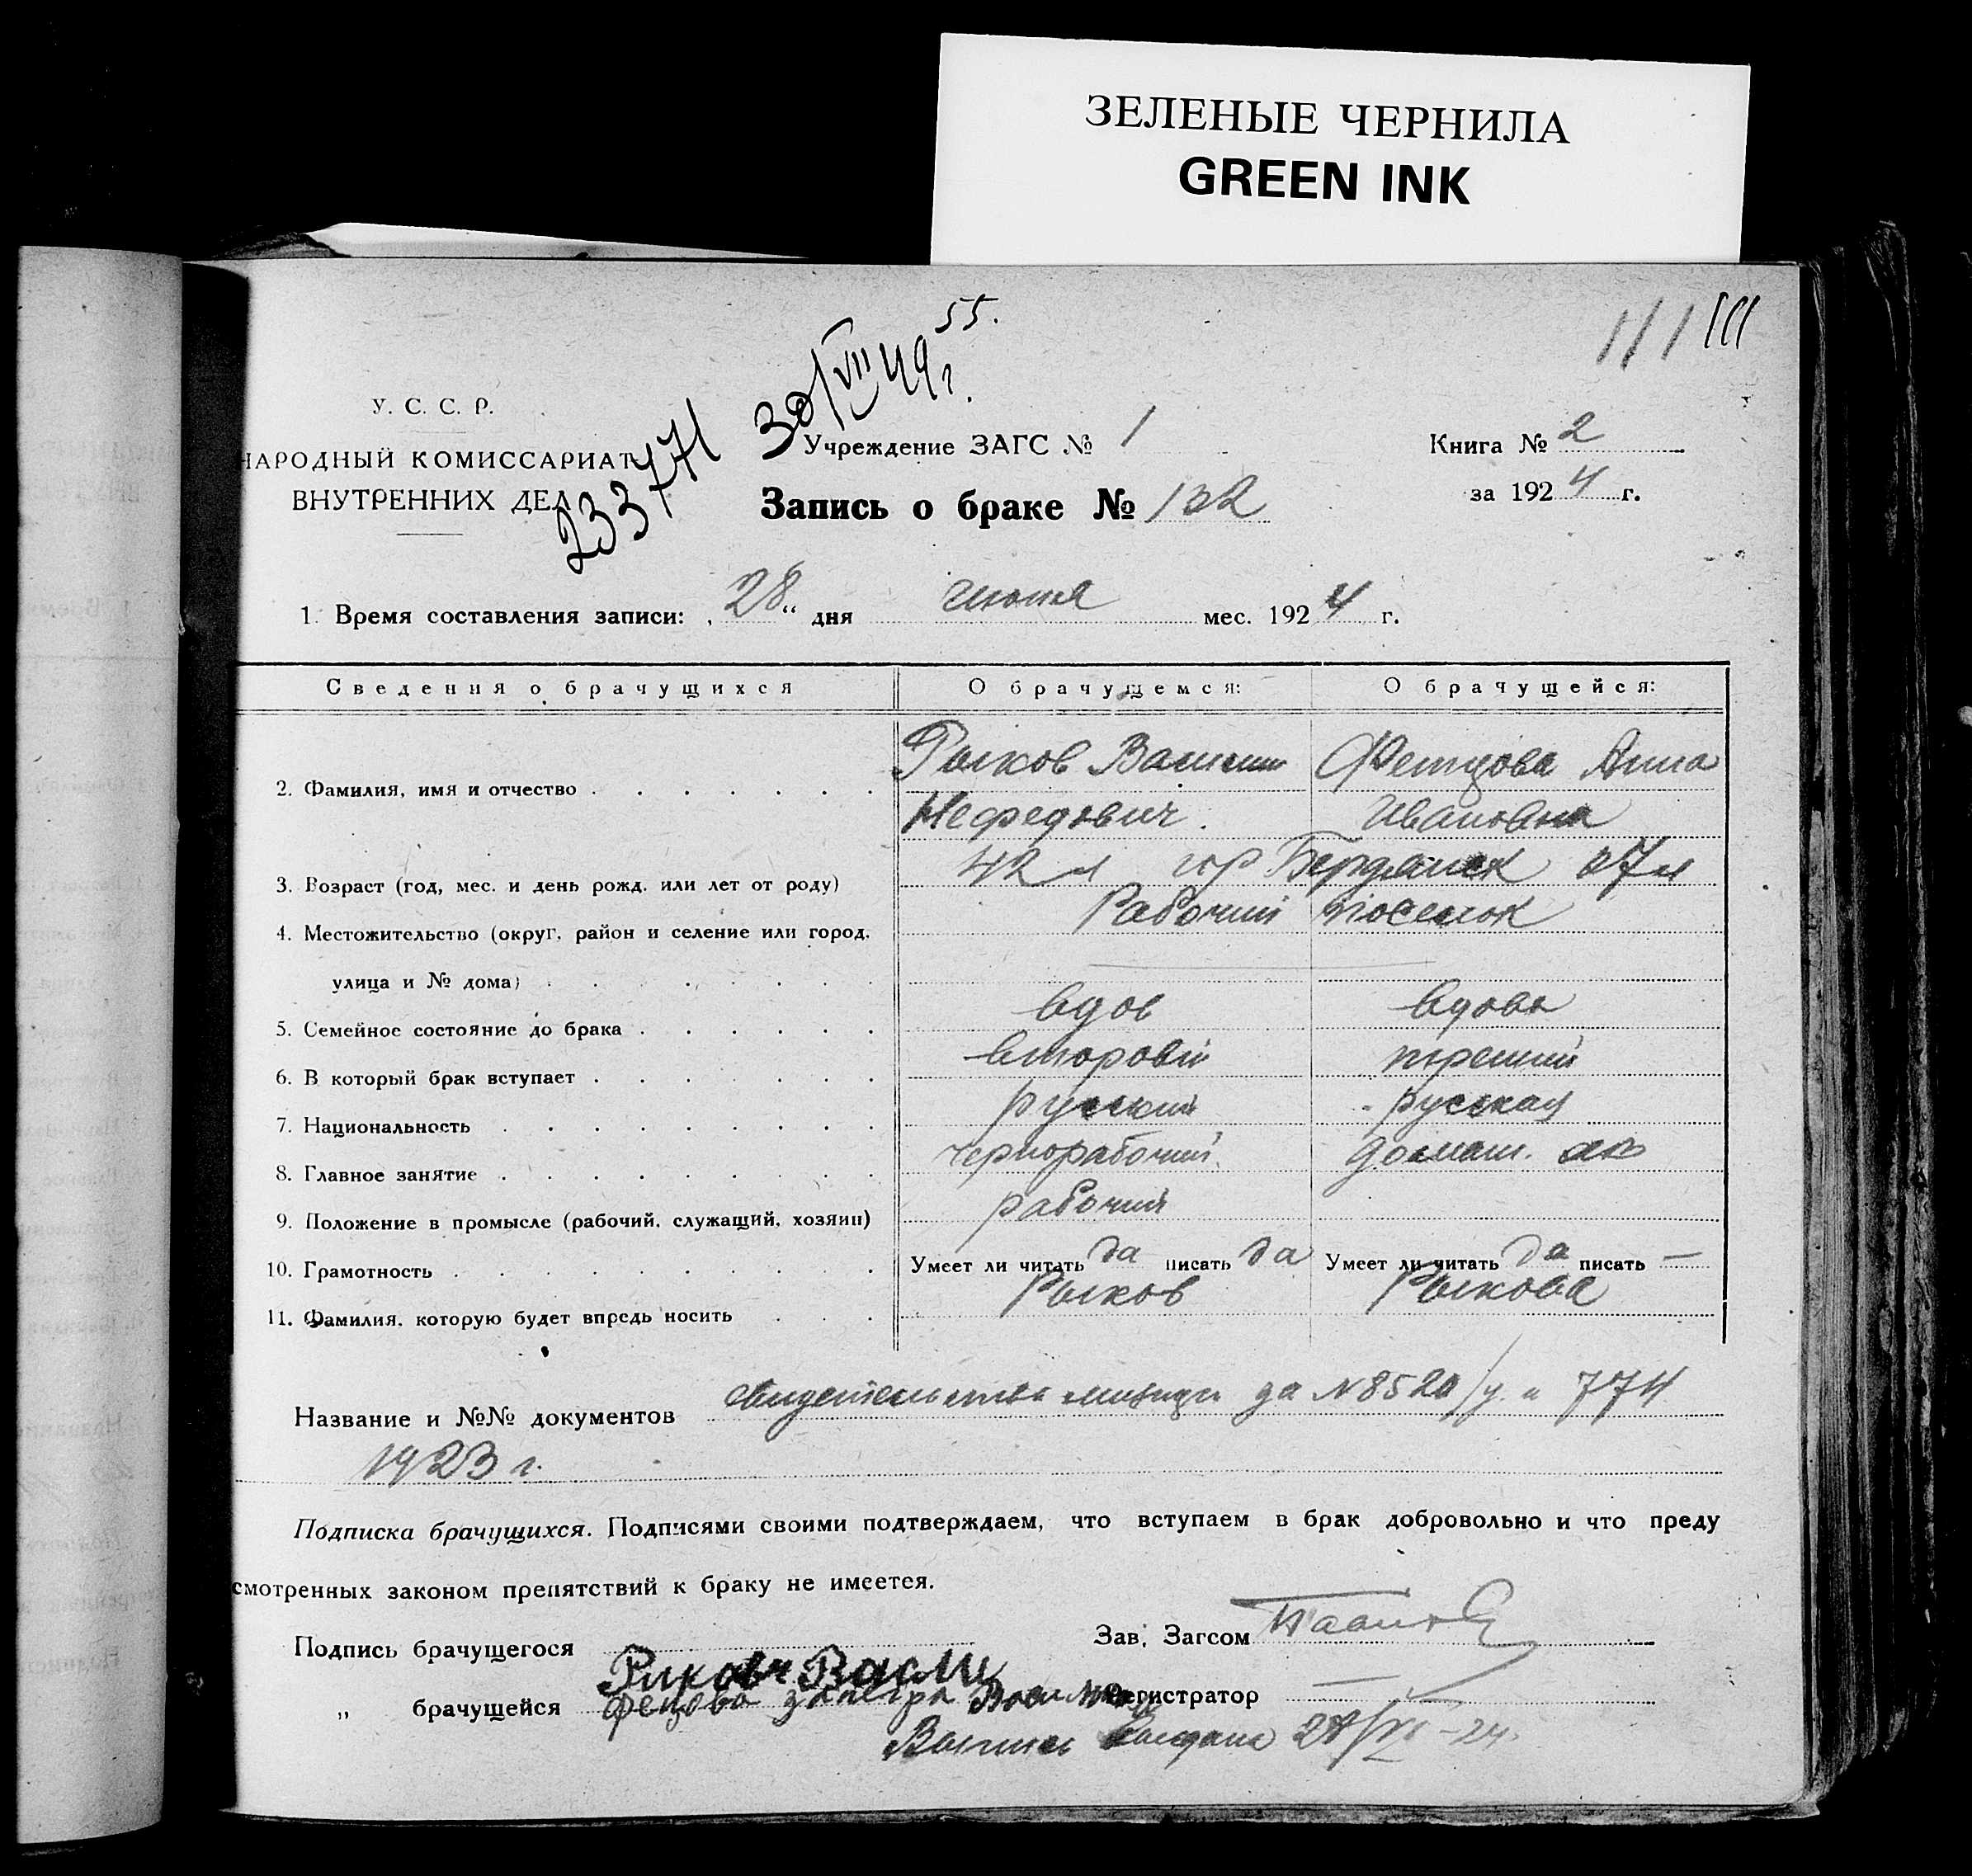 ЗЕЛЕНЫЕ ЧЕРНИЛА
GREEN INK
55.
111 111
У. С. С. Р.
НАРОДНЫЙ КОМИССАРИАТ
ВНУТРЕННИХ ДЕЛ
233771 30/VII 49г.
Учреждение ЗАГС № 1
Книга № 2
за 1924 г.
Запись о браке № 132
1. Время составления записи: „28“ дня июня мес. 1924 г.
Сведения о брачущихся О брачущемся: О брачущейся:
2. Фамилия, имя и отчество Рыков Василий Фетцова Анна
Нефедович. Ивановна
3. Возраст (год, мес. и день рожд. или лет от роду) 42 л гор Бердянск 27 л
4. Местожительство (округ, район и селение или город, Рабочий поселок
улица и № дома)
5. Семейное состояние до брака вдов вдова
6. В который брак вступает второй третий
7. Национальность русский русская
8. Главное занятие чернорабочий домаш. хоз
9. Положение в промысле (рабочий, служащий, хозяин) рабочий
10. Грамотность Умеет ли читать да писать да Умеет ли читать да писать —
11. Фамилия, которую будет впредь носить Рыков Рыкова
Название и №№ документов свидетельства милиции за N 8520/у. и 774
1923 г.
Подписка брачущихся. Подписями своими подтверждаем, что вступаем в брак добровольно и что преду
смотренных законом препятствий к браку не имеется.
Подпись брачущегося Зав. Загсом
Рыков Васили
„ брачущейся Регистратор —
Выпись выдана 28/VI-24.